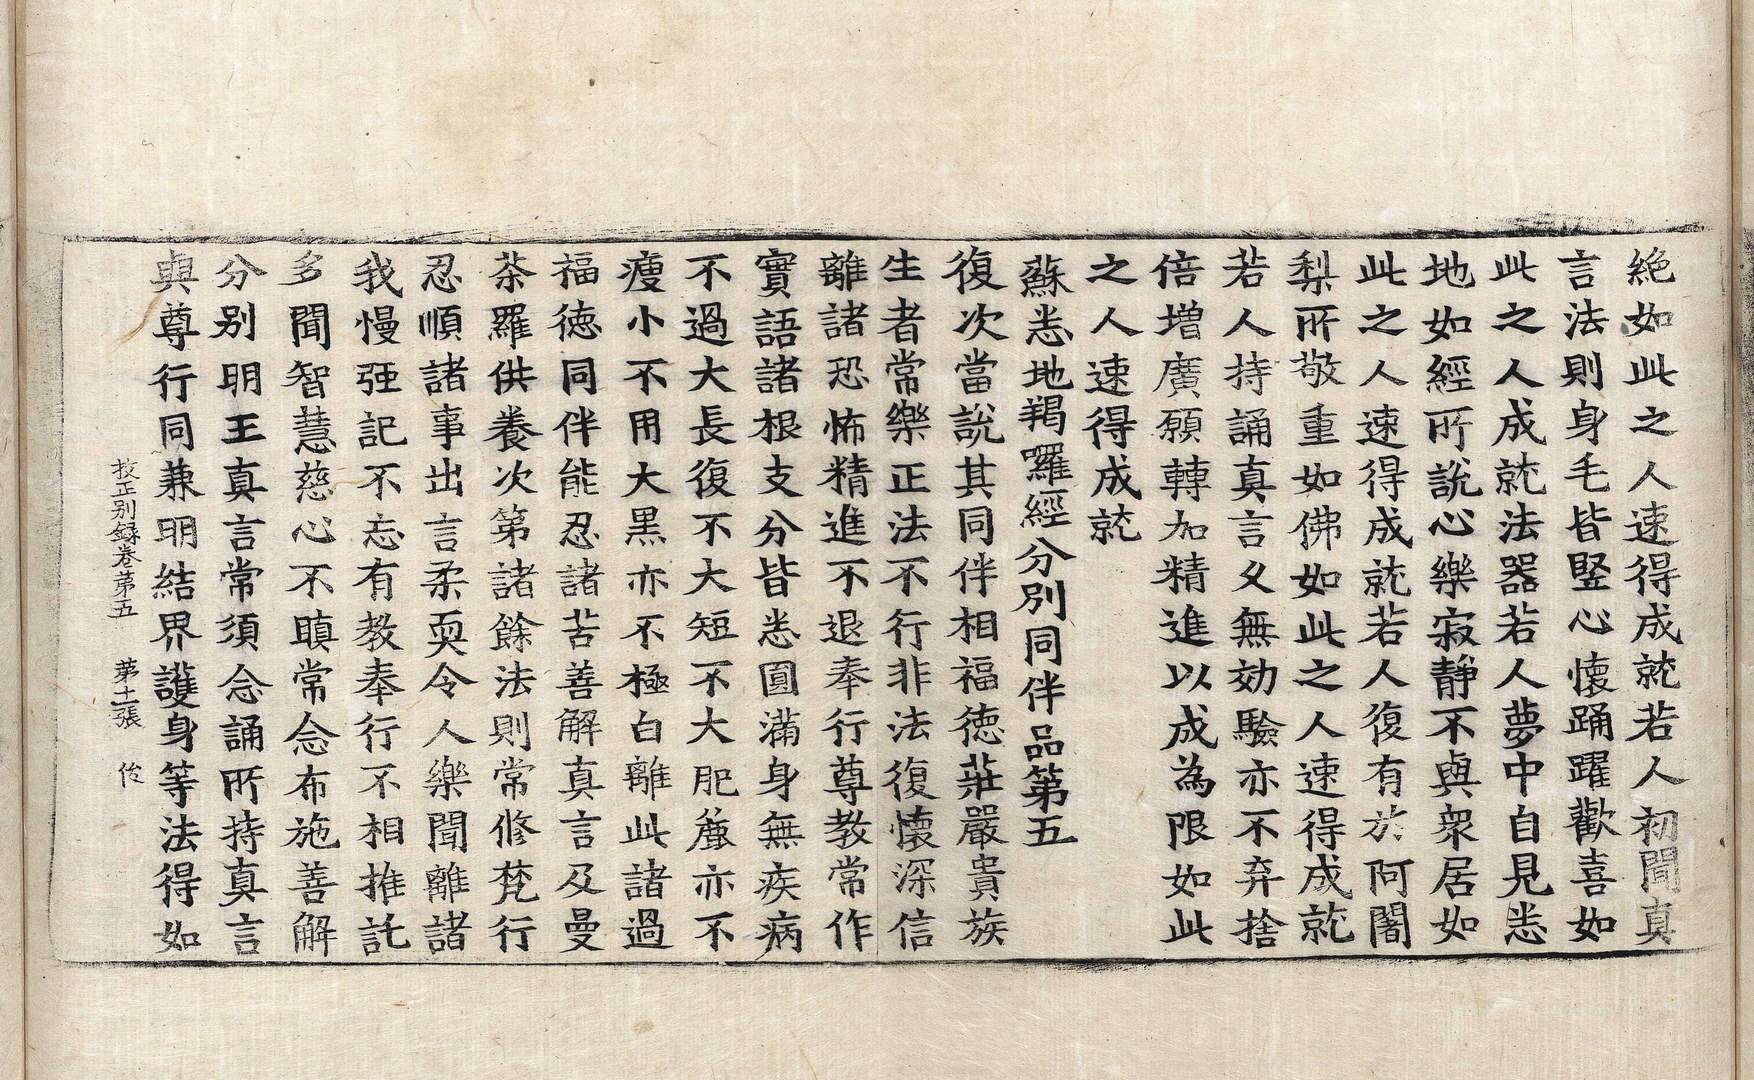 絶如此之人速得成就若人初聞真
言法則身毛皆竪心懷踊躍歡喜如
此之人成就法器若人夢中自見悉
地如經所說心樂寂靜不與衆居如
此之人速得成就若人復有於阿闍
梨所敬重如佛如此之人速得成就
若人持誦真言久無効驗亦不弃捨
倍增廣願轉加精進以成為限如此
之人速得成就
蘇悉地羯囉經分別同伴品第五
復次當說其同伴相福德莊嚴貴族
生者常樂正法不行非法復懷深信
離諸恐怖精進不退奉行尊教常作
實語諸根支分皆悉圓滿身無疾病
不過大長復不大短不大肥麁亦不
瘦小不用大黑亦不極白離此諸過
福德同伴能忍諸苦善解真言及曼
荼羅供養次第諸餘法則常修梵行
忍順諸事出言柔耎令人樂聞離諸
我慢强記不忘有教奉行不相推託
多聞智慧慈心不瞋常念布施善解
分別明王真言常須念誦所持真言
與尊行同兼明結界護身等法得如
校正別錄卷第五 第十一張 俊